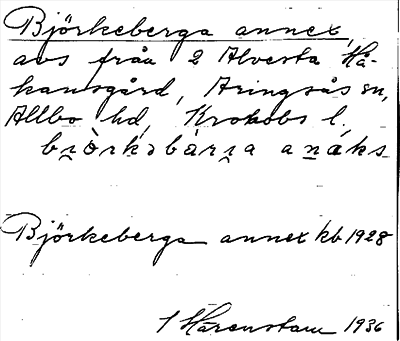 Björkeberga annex,
avs från 2 Alvesta Hå-
kansgård, Aringsås sn,
Allbo hd, Kronobs l.
bjòrkəbærja anáks
Björkeberga annex kb 1928
Harenstam 1936